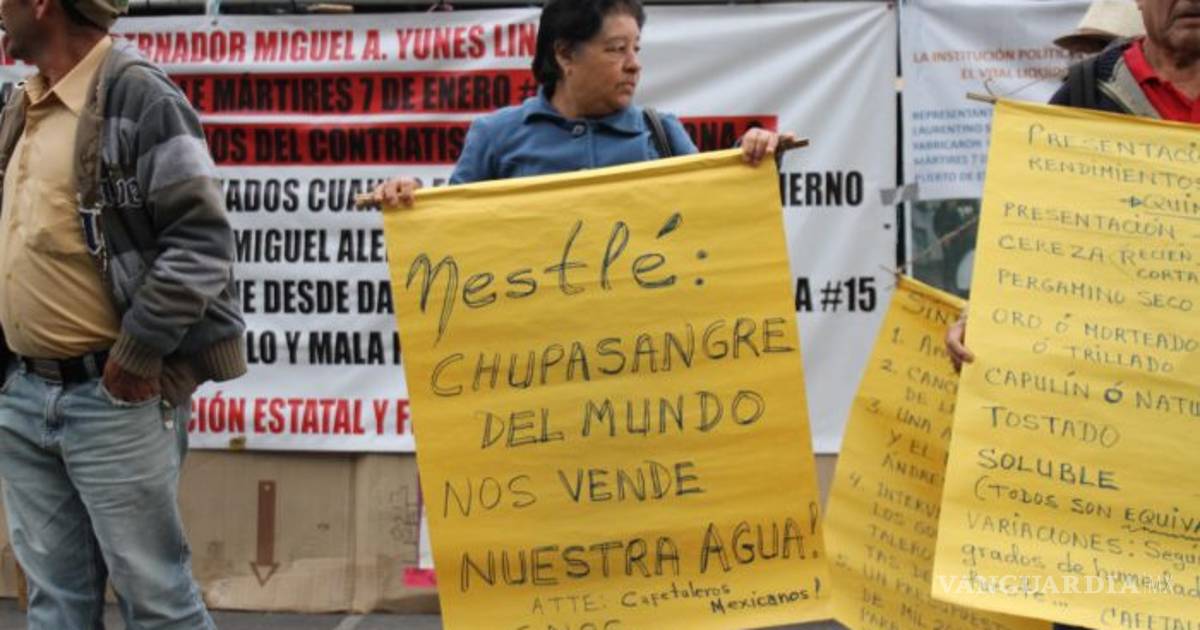 BERNADOR MIGUEL A. YUNES LIN
E MÁRTIRES 7 DE ENERO #
OS DEL CONTRATIS
ADOS CUAN
IERNO
MIGUEL ALE
E DESDE DA
A #15
LO Y MALA
CIÓN ESTATAL Y F
LA INSTITUCIÓN
EL VITAL LIQUID
REPRESENTANT
LAURENTINO
FABRICARON
MÁRTIRES 7
PUERTO DE
Nestlé:
CHUPASANGRE
DEL MUNDO
NOS VENDE
NUESTRA AGUA!
ATTE: Cafetaleros
Mexicanos!
SIN
1.
2. CANC
DE L
3. UNA A
Y EL
ANDRÉ
4. INTERV
LOS GO
TALERO
TAS DE
5. UN
DE MIL
PARA
PRESENTACIO
RENDIMIENTOS
QUIN
PRESENTACIÓN
CEREZA (RECIEN
CORTA
PERGAMINO SECO
ORO Ó MORTEADO
Ó TRILLADO
CAPULÍN Ó NATU
TOSTADO
SOLUBLE
(TODOS SON EQUIVA
VARIACIONES: Segu
grados de humedad
CAFETAL
VANGUARDIA MX